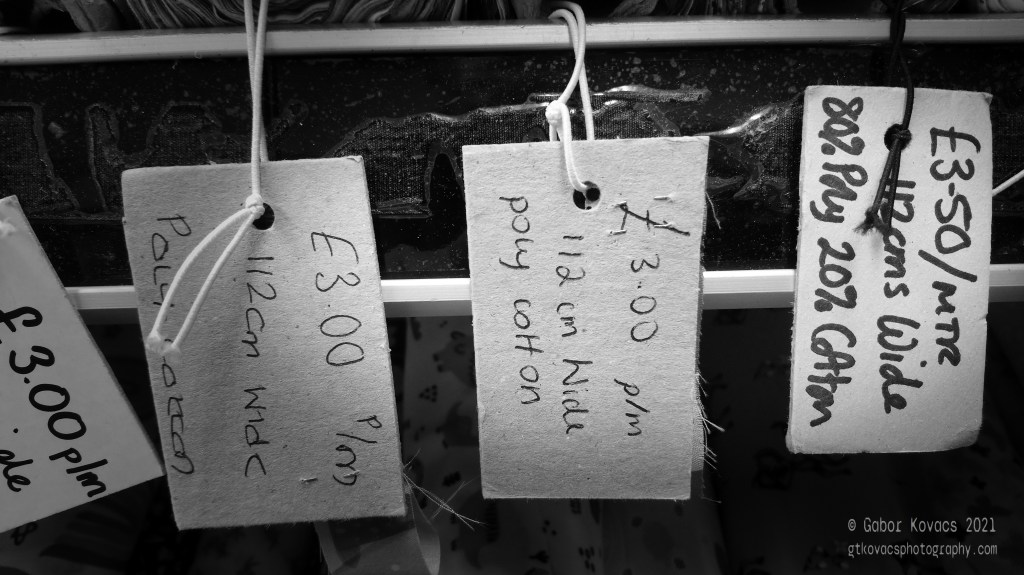 £3.00 p/m
ide
£3.00 P/m
112cm Wide
Poly Cotton
£3.00 p/m
112 cm Wide
poly cotton
£3-50/MTR
112cms Wide
80% Poly 20% Cotton
© Gabor Kovacs 2021
gtkovacsphotography.com